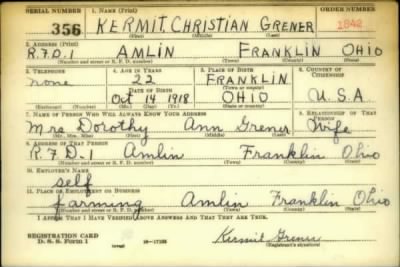 SERIAL NUMBER 1. NAME (Print) ORDER NUMBER
356 KERMIT CHRISTIAN GRENER 1842
(First) (Middle) (Last)
2. ADDRESS (Print)
R.F.D. 1 AMLIN FRANKLIN OHIO
(Number and street or R. F. D. number) (Town) (County) (State)
3. TELEPHONE 4. AGE IN YEARS 5. PLACE OF BIRTH 6. COUNTRY OF CITIZENSHIP
none 22 FRANKLIN
DATE OF BIRTH (Town or county)
Oct 14 1918 OHIO U.S.A
(Exchange) (Number) (Mo.) (Day) (Yr.) (State or country)
7. NAME OF PERSON WHO WILL ALWAYS KNOW YOUR ADDRESS 8. RELATIONSHIP OF THAT PERSON
Mrs Dorothy Ann Grener Wife
(Mr., Mrs., Miss) (First) (Middle) (Last)
9. ADDRESS OF THAT PERSON
R.F.D. 1 Amlin Franklin Ohio
(Number and street or R. F. D. number) (Town) (County) (State)
10. EMPLOYER'S NAME
self
11. PLACE OF EMPLOYMENT OR BUSINESS
farming Amlin Franklin Ohio
(Number and street or R. F. D. number) (Town) (County) (State)
I AFFIRM THAT I HAVE VERIFIED ABOVE ANSWERS AND THAT THEY ARE TRUE.
REGISTRATION CARD
D. S. S. Form 1 (over) 16—17105 Kermit Grener
(Registrant's signature)